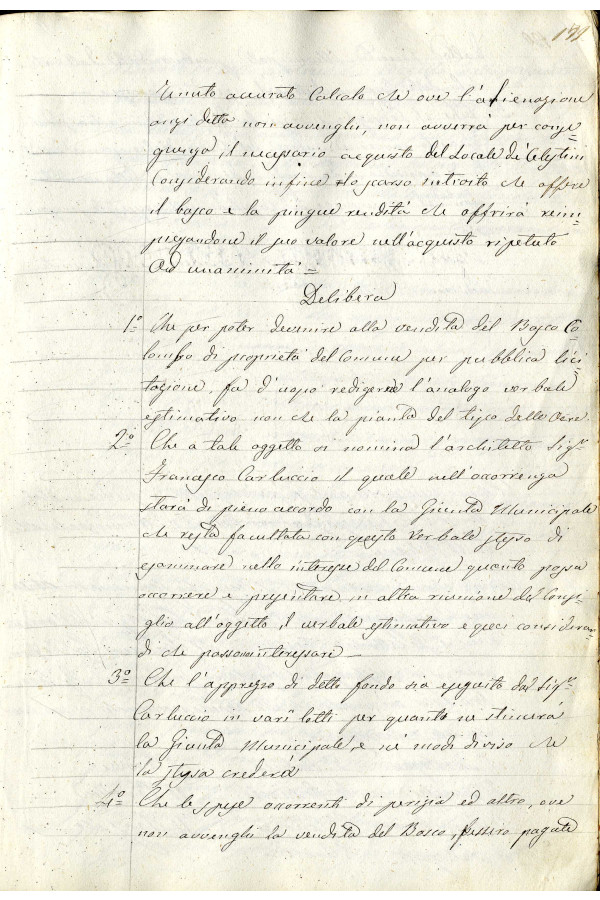 191
Tenuto accurato calcolo che ove l'alienazione
anzi detta non avvenghi, non avverrà per conse-
guenza, il necessario acquisto del Locale de' Celestini
Considerando infine  lo scarso introito che offere
il bosco e la pingue rendita che offrirà reim-
piegandone il suo valore nell'acquisto ripetuto
Ad unanimità =
Delibera
1º Che per poter devenire alla vendita del Bosco Co-
lombo di proprietà del Comune per pubblica lici-
tazione, fa d'uopo redigere l'analogo verbale
estimativo non che la pianta del tipo delle Aere.
2º Che a tale oggetto si nomina l'architetto Sigr
Francesco Carluccio il quale nell'occorrenza
starà di pieno accordo con la Giunta Municipale
che resta facultata con questo verbale stesso di
esaminare nello interesse del Comune quanto possa
occorrere e presentare in altra riunione del Consi-
glio all'oggetto, il verbale estimativo e quei consideran-
di che possono interessare —
3º Che l'apprezzo di detto fondo sia eseguito dal Sigr
Carluccio in varî lotti per quanto ne stimerà
la Giunta Municipale, e ne' modi diviso che
la stessa crederà
4º Che le spese occorrenti di perizia ed altro, ove
non avvenghi la vendita del Bosco, fossero pagate